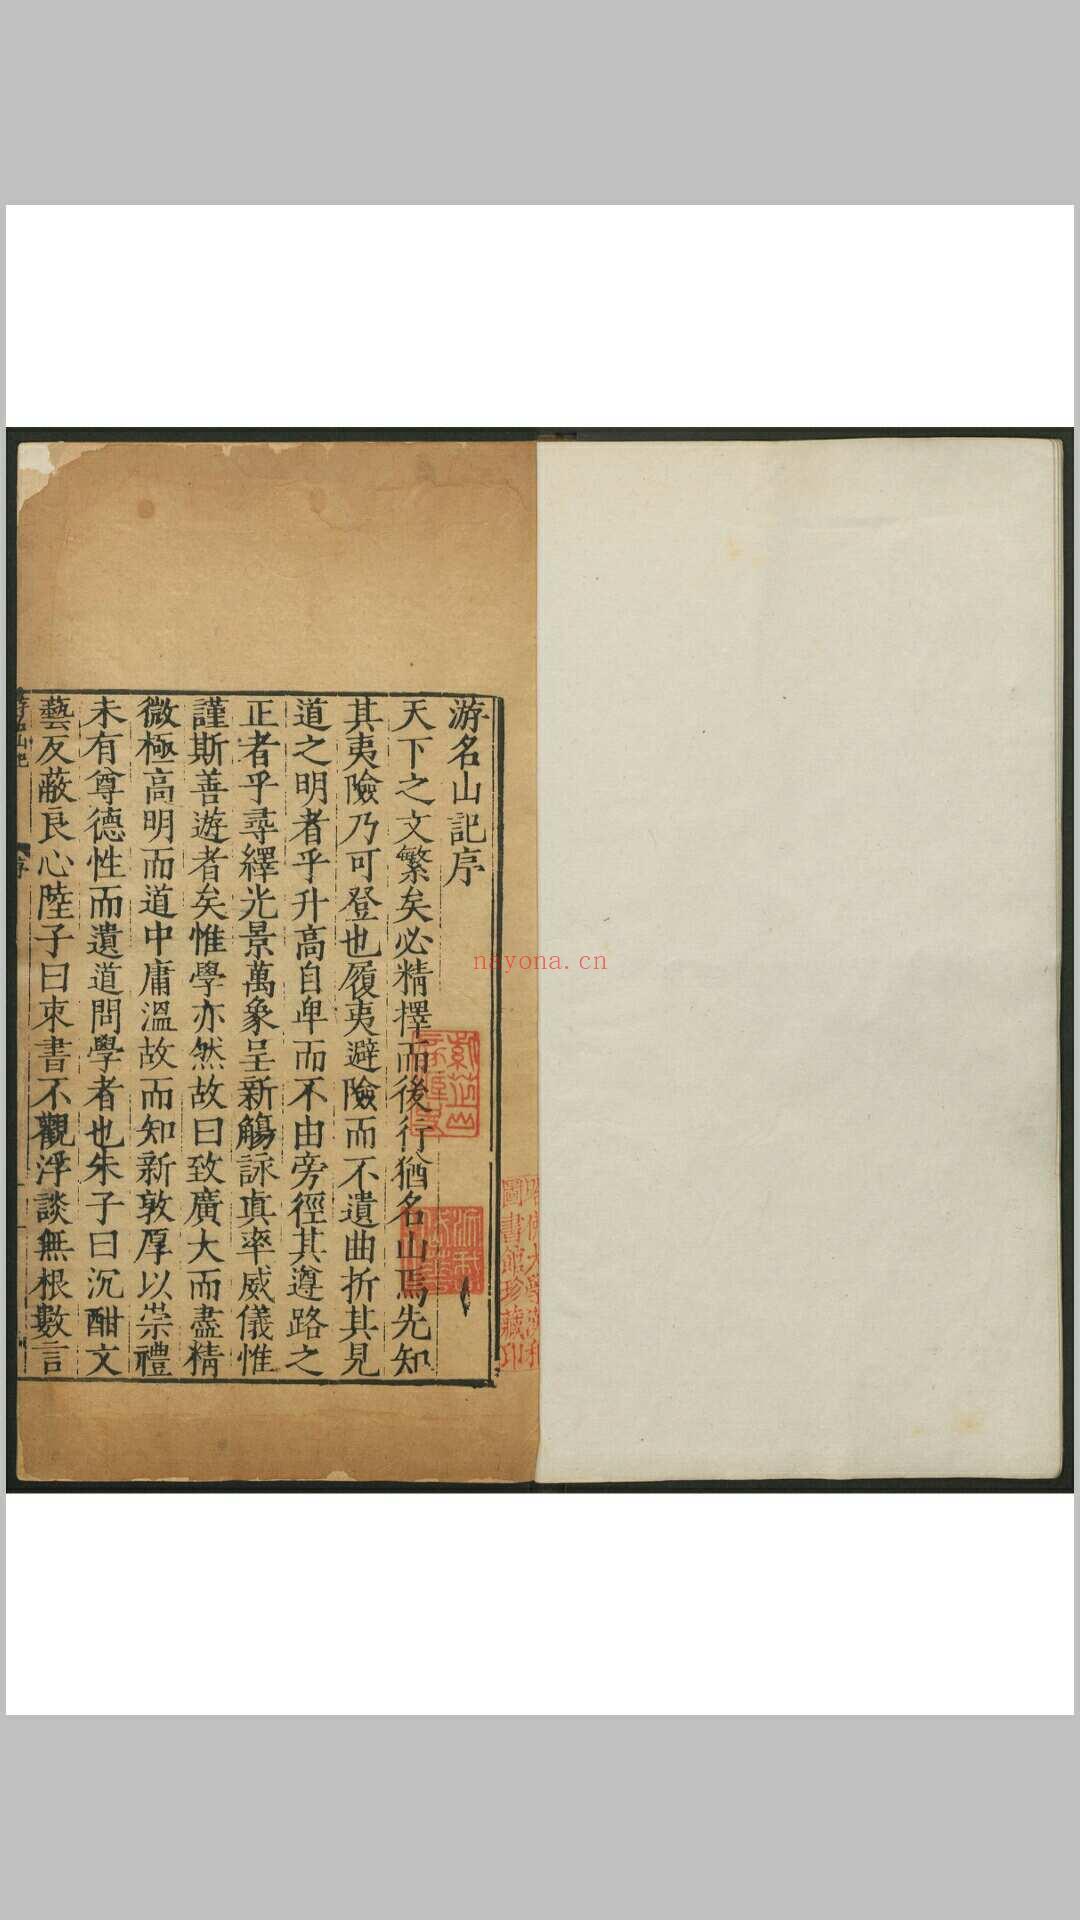 游名山記序
天下之文繁矣必精擇而後行猶名山焉先知
其夷險乃可登也履夷避險而不遺曲折其見
道之明者乎升高自卑而不由旁徑其遵路之
正者乎尋繹光景萬象呈新觴詠真率威儀惟
謹斯善遊者矣惟學亦然故曰致廣大而盡精
微極高明而道中庸溫故而知新敦厚以崇禮
未有尊德性而遺道問學者也朱子曰沉酣文
藝反蔽良心陸子曰束書不觀浮談無根數言
游名山記
序
圖書館珍藏印
nayona.cn